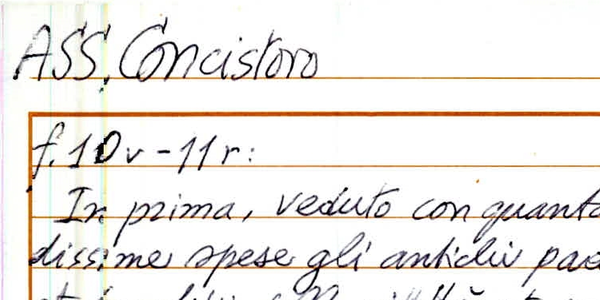 ASS, Concistoro
f. 10v-11r:
In prima, veduto con quanta
dissime spese gli antichi pae